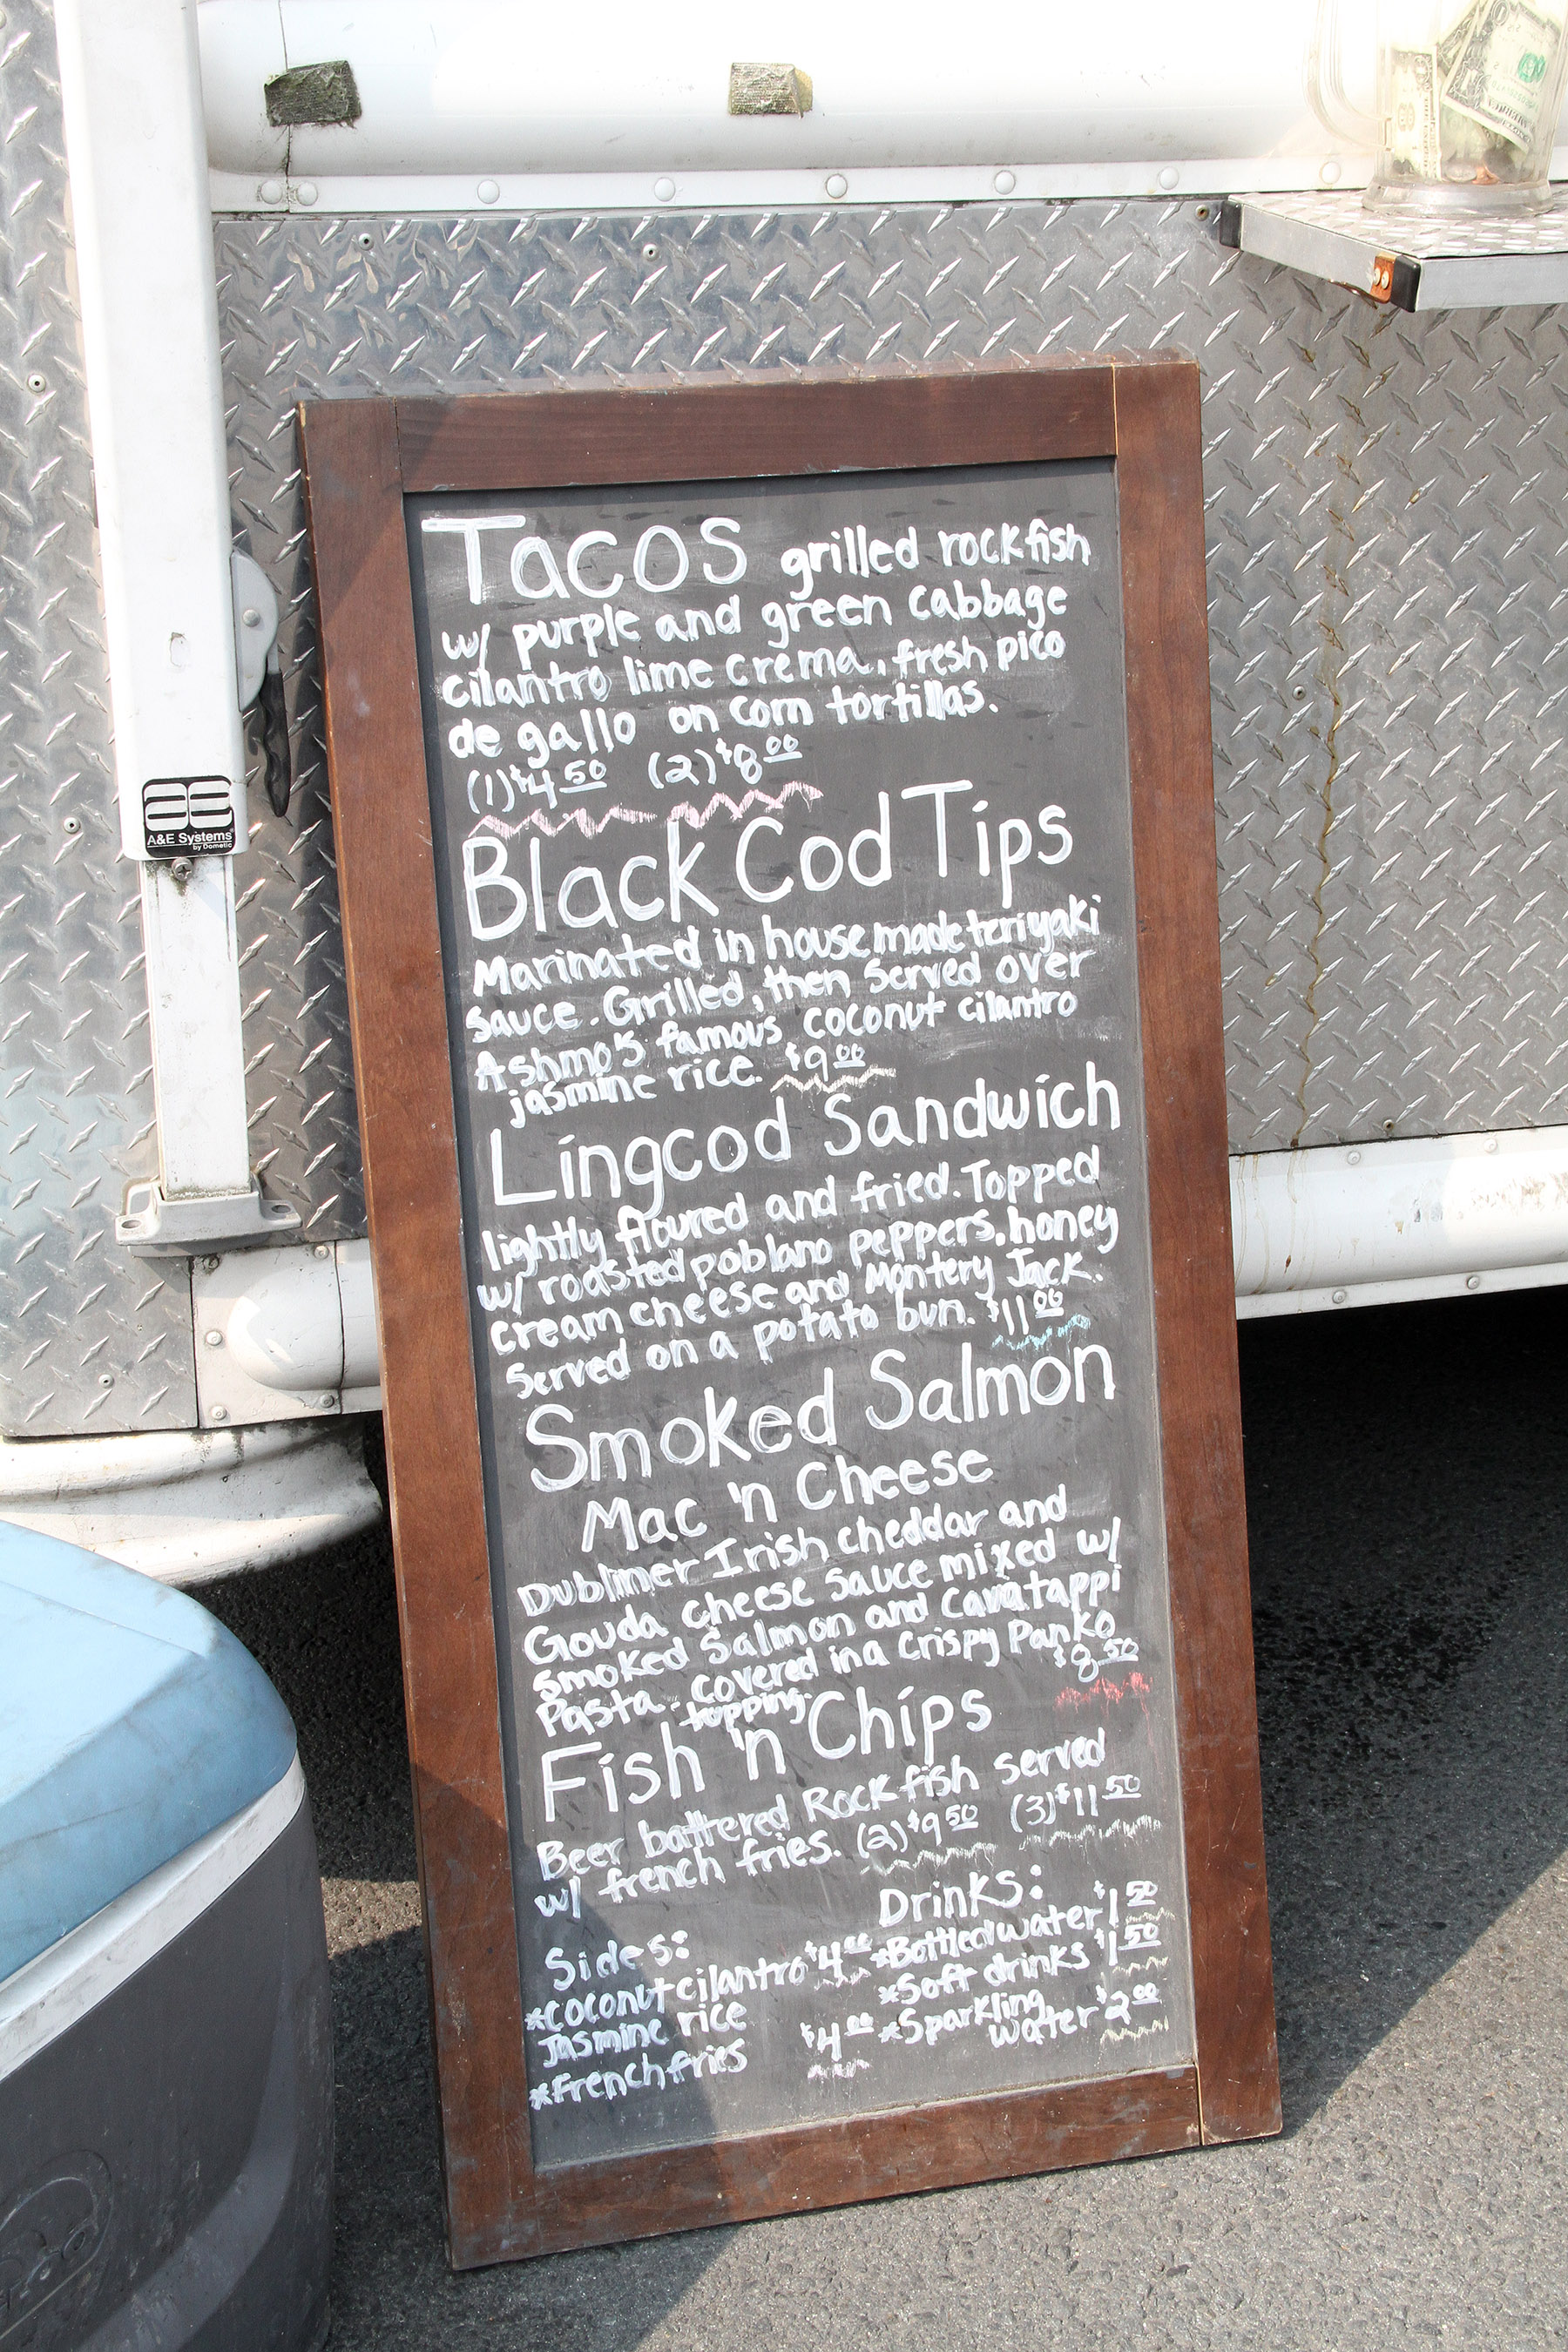 Tacos grilled rockfish
w/ purple and green cabbage
cilantro lime crema, fresh pico
de gallo on corn tortillas.
(1) $4.50 (2) $8.00
Black Cod Tips
Marinated in house made teriyaki
sauce. Grilled, then served over
Ashmo's famous coconut cilantro
jasmine rice. $9.00
Lingcod Sandwich
lightly floured and fried. Topped
w/ roasted poblano peppers, honey
cream cheese and Montery Jack.
Served on a potato bun. $11.00
Smoked Salmon
Mac 'n Cheese
Dubliner Irish cheddar and
Gouda cheese sauce mixed w/
smoked salmon and Cavatappi
Pasta. covered in a crispy Panko
topping. $8.50
Fish 'n Chips
Beer battered Rockfish served
w/ french fries. (2) $9.50 (3) $11.50
Sides:
*Coconut cilantro $4.00
Jasmine rice
*French fries $4.00
Drinks:
*Bottled water $1.50
*Soft drinks $1.50
*Sparkling
water $2.00
A&E Systems
by Dometic